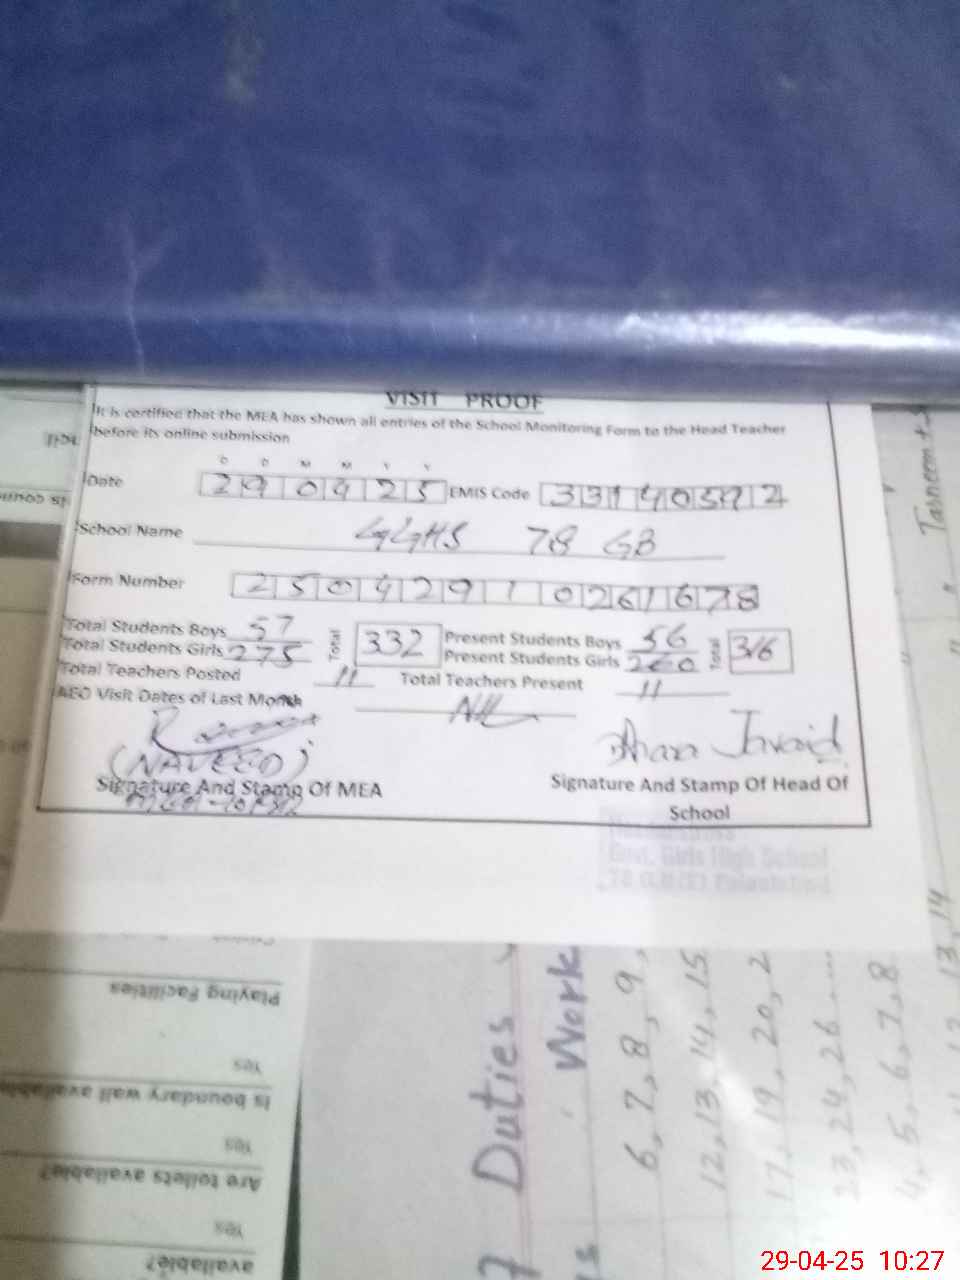 VISIT PROOF
It is certified that the MEA has shown all entries of the School Monitoring Form to the Head Teacher
before its online submission
D D M M Y Y
Date 290425 EMIS Code 33140592
School Name GGHS 78 GB
Form Number 250429110261678
Total Students Boys 57 Total 332 Present Students Boys 56 Total 316
Total Students Girls 275 Present Students Girls 260
Total Teachers Posted 11 Total Teachers Present 11
AEO Visit Dates of Last Month NIL
(NAVEED) Javaid
Signature And Stamp Of MEA Signature And Stamp Of Head Of
School
Govt. Girls High School
Tasneem
Playing Facilities
Yes
Is boundary wall available
Yes
Are toilets available?
Yes
available?
Duties
Work
6,7,8,9,
12,13,14,15
17,19,20,2
23,24,26....
4,5,6,7,8
13,14
29-04-25 10:27